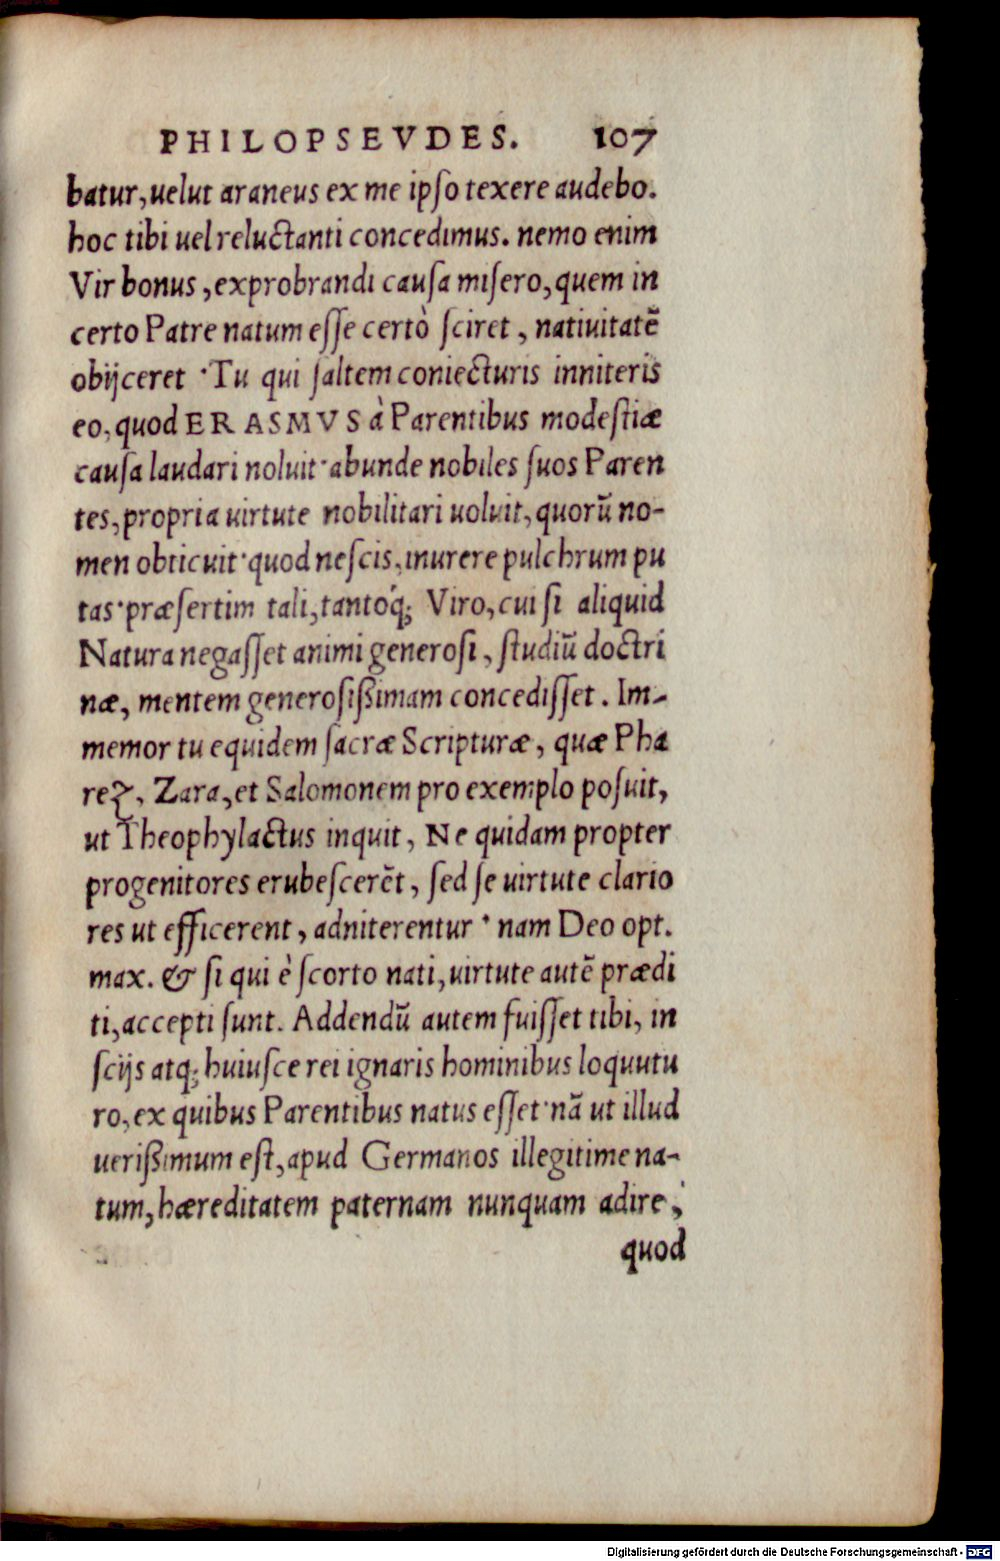 PHILOPSEVDES. 107
batur, uelut araneus ex me ipſo texere audebo.
hoc tibi uel reluctanti concedimus. nemo enim
Vir bonus, exprobrandi cauſa miſero, quem in
certo Patre natum eſſe certò ſciret, natiuitatē
obijceret · Tu qui ſaltem coniecturis inniteris
eo, quod ERASMVS à Parentibus modeſtiæ
cauſa laudari noluit · abunde nobiles ſuos Paren
tes, propria uirtute nobilitari uoluit, quorū no-
men obticuit · quod neſcis, inurere pulchrum pu
tas · præſertim tali, tantoq́; Viro, cui ſi aliquid
Natura negaſſet animi generoſi, ſtudiū doctri
næ, mentem generoſißimam conceдiſſet. Im-
memor tu equidem ſacræ Scripturæ, quæ Pha
rez, Zara, et Salomonem pro exemplo poſuit,
ut Theophylactus inquit, Ne quidam propter
progenitores erubeſcerēt, ſed ſe uirtute clario
res ut efficerent, adniterentur · nam Deo opt.
max. & ſi qui è ſcorto nati, uirtute autē prædi
ti, accepti ſunt. Addendū autem fuiſſet tibi, in
ſcijs atq; huiuſce rei ignaris hominibus loquutu
ro, ex quibus Parentibus natus eſſet · nā ut illud
uerißimum eſt, apud Germanos illegitime na-
tum, hæreditatem paternam nunquam adire,
quod
Digitalisierung gefördert durch die Deutsche Forschungsgemeinschaft - DFG